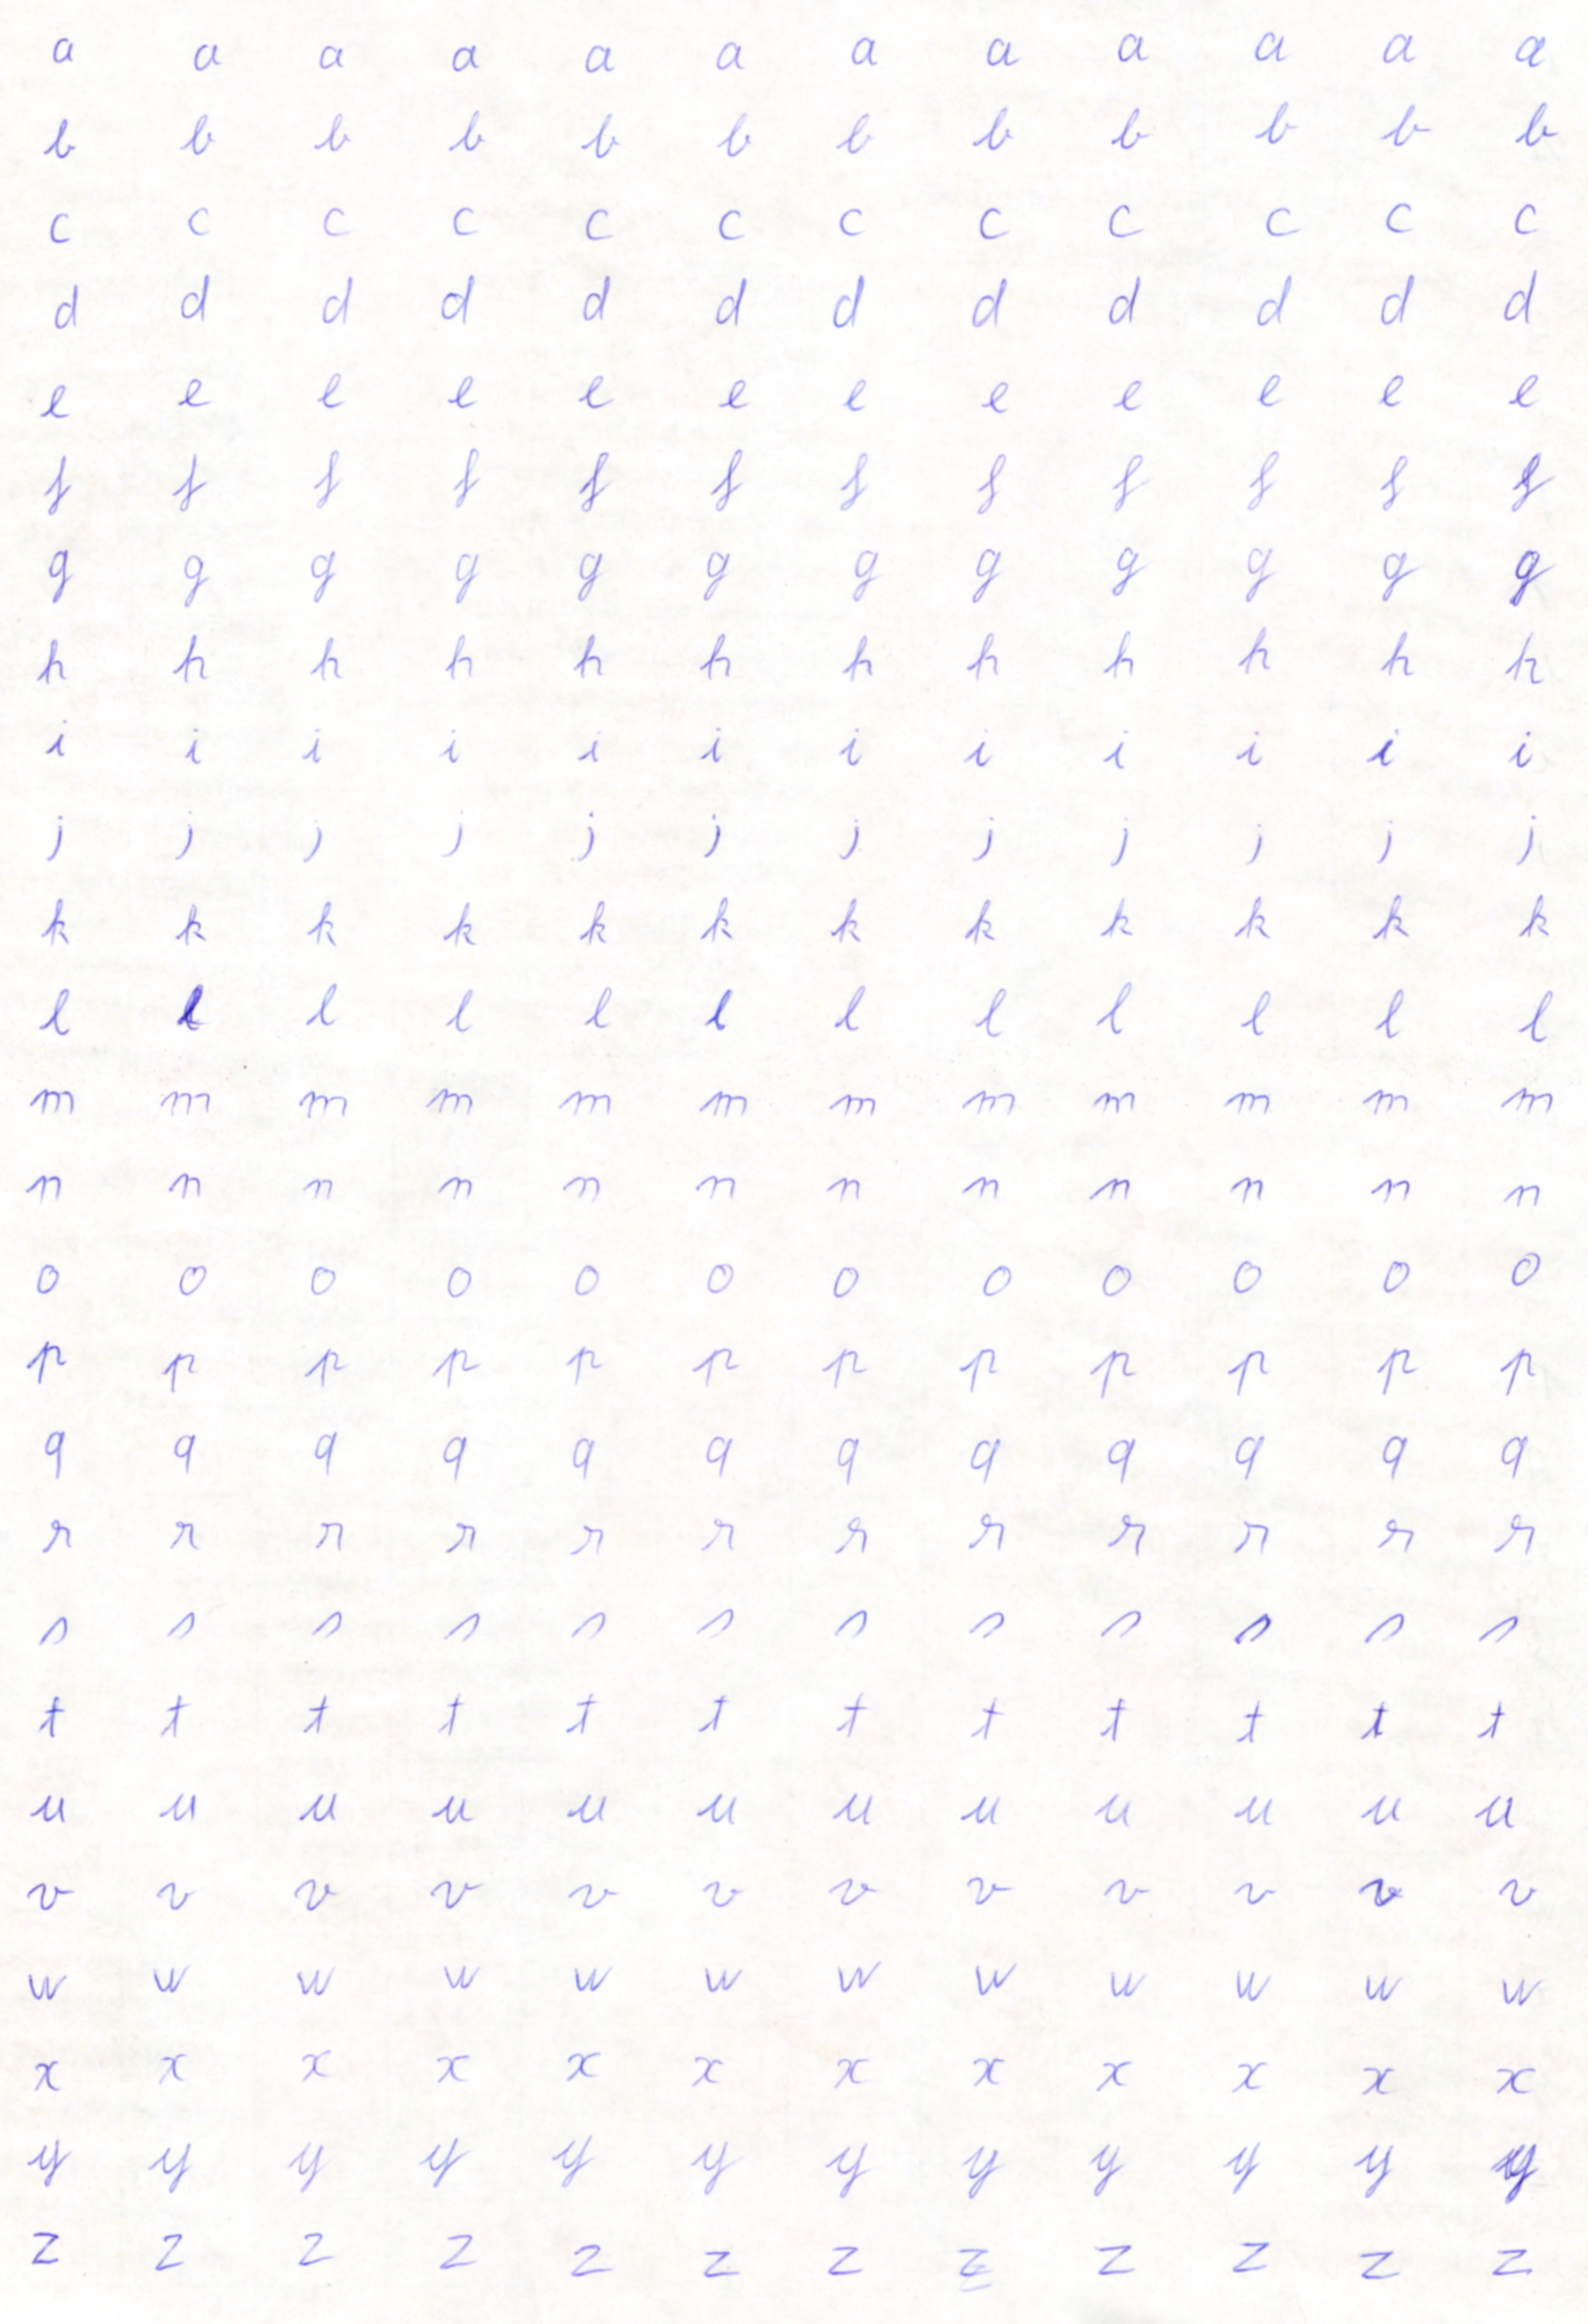 a a a a a a a a a a a a
b b b b b b b b b b b b
c c c c c c c c c c c c
d d d d d d d d d d d d
e e e e e e e e e e e e
f f f f f f f f f f f f
g g g g g g g g g g g g
h h h h h h h h h h h h
i i i i i i i i i i i i
j j j j j j j j j j j j
k k k k k k k k k k k k
l l l l l l l l l l l l
m m m m m m m m m m m m
n n n n n n n n n n n n
o o o o o o o o o o o o
p p p p p p p p p p p p
q q q q q q q q q q q q
r r r r r r r r r r r r
s s s s s s s s s s s s
t t t t t t t t t t t t
u u u u u u u u u u u u
v v v v v v v v v v v v
w w w w w w w w w w w w
x x x x x x x x x x x x
y y y y y y y y y y y y
z z z z z z z z z z z z